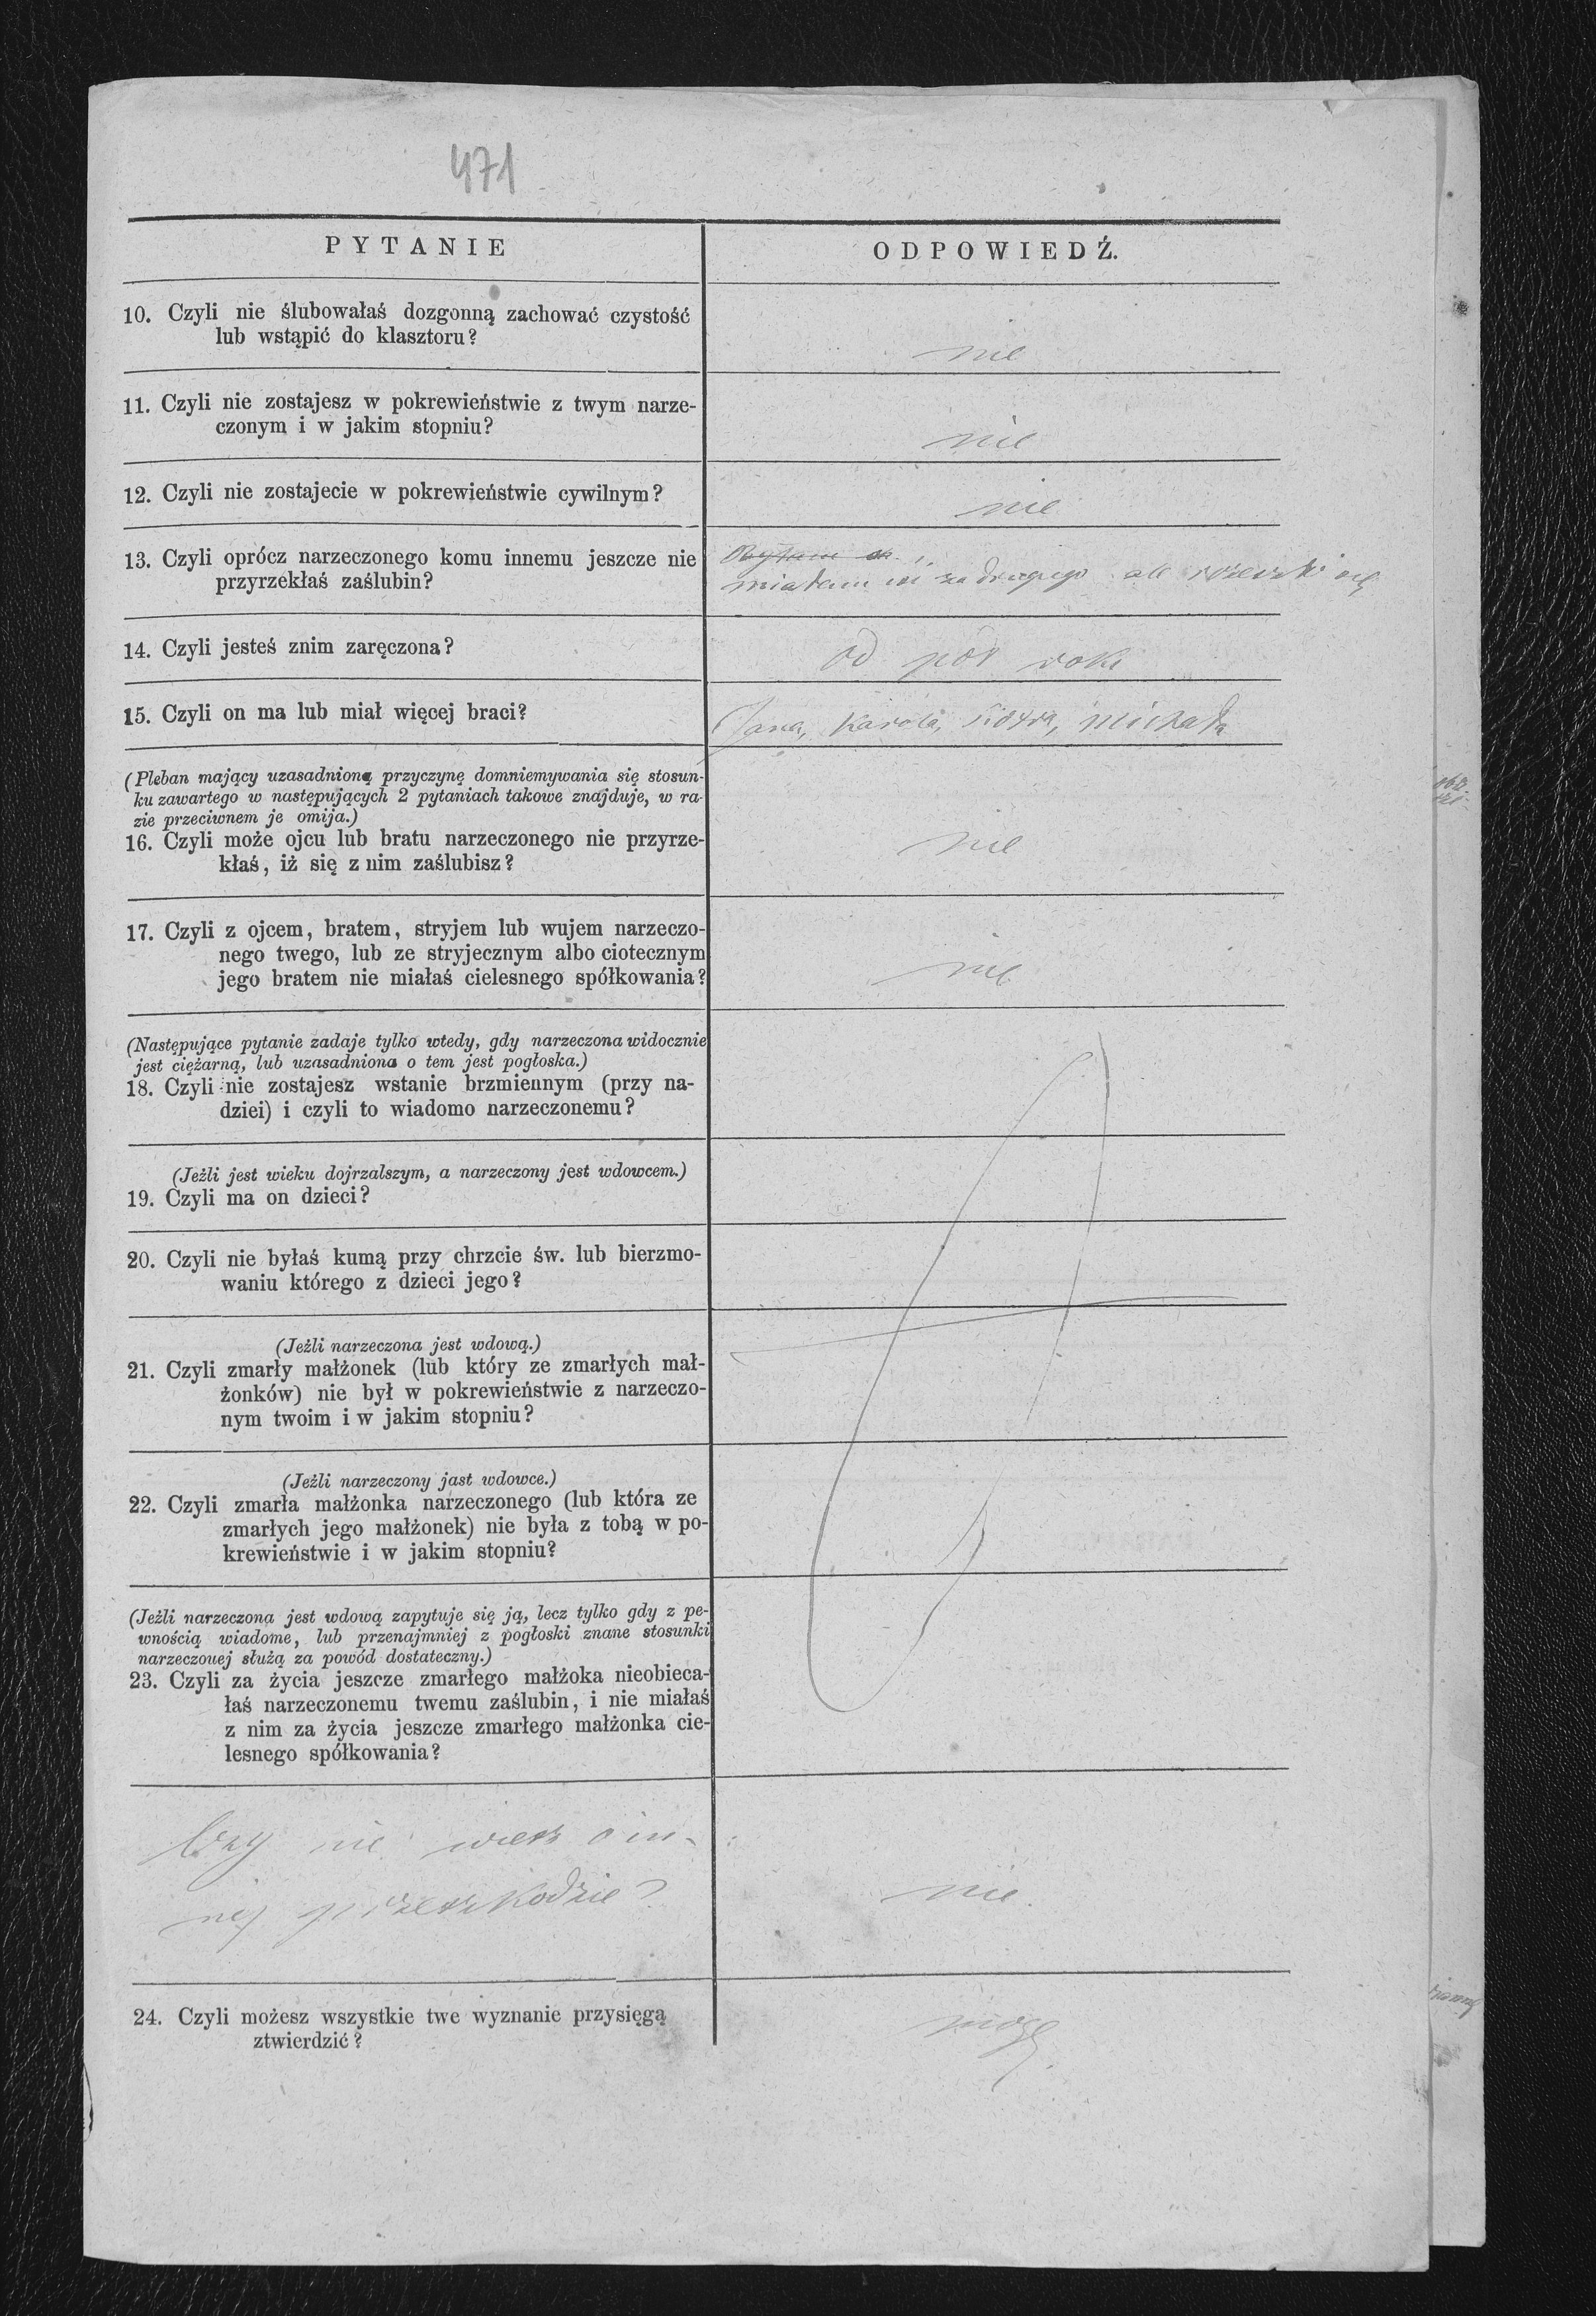 471
PYTANIE
ODPOWIEDŹ.
10. Czyli nie ślubowałaś dozgonną zachować czystość
lub wstąpić do klasztoru?
nie
11. Czyli nie zostajesz w pokrewieństwie z twym narze-
czonym i w jakim stopniu?
nie
12. Czyli nie zostajecie w pokrewieństwie cywilnym?
nie
13. Czyli oprócz narzeczonego komu innemu jeszcze nie
przyrzekłaś zaślubin?
miałam iść za drugiego ale
14. Czyli jesteś znim zaręczona?
od pół roku
15. Czyli on ma lub miał więcej braci?
Jana, Karola, Piotra, Michała
(Pleban mający uzasadnioną przyczynę domniemywania się stosun-
ku zawartego w następujących 2 pytaniach takowe znajduje, w ra-
zie przeciwnem je omija.)
16. Czyli może ojcu lub bratu narzeczonego nie przyrze-
kłaś, iż się z nim zaślubisz?
nie
17. Czyli z ojcem, bratem, stryjem lub wujem narzeczo-
nego twego, lub ze stryjecznym albo ciotecznym
jego bratem nie miałaś cielesnego spółkowania?
nie
(Następujące pytanie zadaje tylko wtedy, gdy narzeczona widocznie
jest ciężarną, lub uzasadniona o tem jest pogłoska.)
18. Czyli nie zostajesz wstanie brzmiennym (przy na-
dziei) i czyli to wiadomo narzeczonemu?
(Jeżli jest wieku dojrzalszym, a narzeczony jest wdowcem.)
19. Czyli ma on dzieci?
20. Czyli nie byłaś kumą przy chrzcie św. lub bierzmo-
waniu którego z dzieci jego?
(Jeżli narzeczona jest wdową.)
21. Czyli zmarły małżonek (lub który ze zmarłych mał-
żonków) nie był w pokrewieństwie z narzeczo-
nym twoim i w jakim stopniu?
(Jeżli narzeczony jast wdowce.)
22. Czyli zmarła małżonka narzeczonego (lub która ze
zmarłych jego małżonek) nie była z tobą w po-
krewieństwie i w jakim stopniu?
(Jeżli narzeczona jest wdową zapytuje się ją, lecz tylko gdy z pe-
wnością wiadome, lub przenajmniej z pogłoski znane stosunki
narzeczouej służą za powód dostateczny.)
23. Czyli za życia jeszcze zmarłego małżoka nieobieca-
łaś narzeczonemu twemu zaślubin, i nie miałaś
z nim za życia jeszcze zmarłego małżonka cie-
lesnego spółkowania?
Czy nie wiesz o in-
nej przeszkodzie?
nie.
24. Czyli możesz wszystkie twe wyznanie przysięgą
ztwierdzić?
mogę.